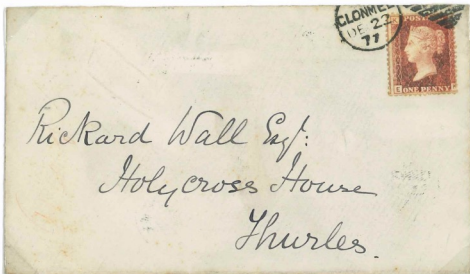 CLONMEL
DE 22
77
POSTAGE
ONE PENNY
Rickard Wall Esqr:
Holycross House
Thurles.